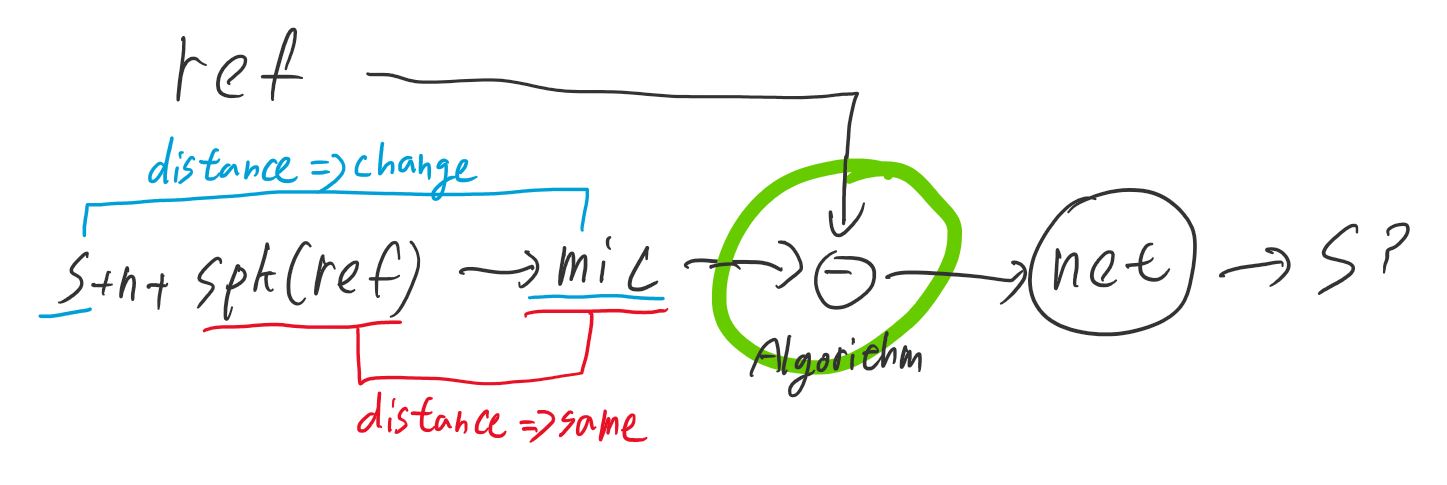 ref
distance => change
s+n+ spk(ref) → mic → ⊖ → net → s?
Algorithm
distance => same